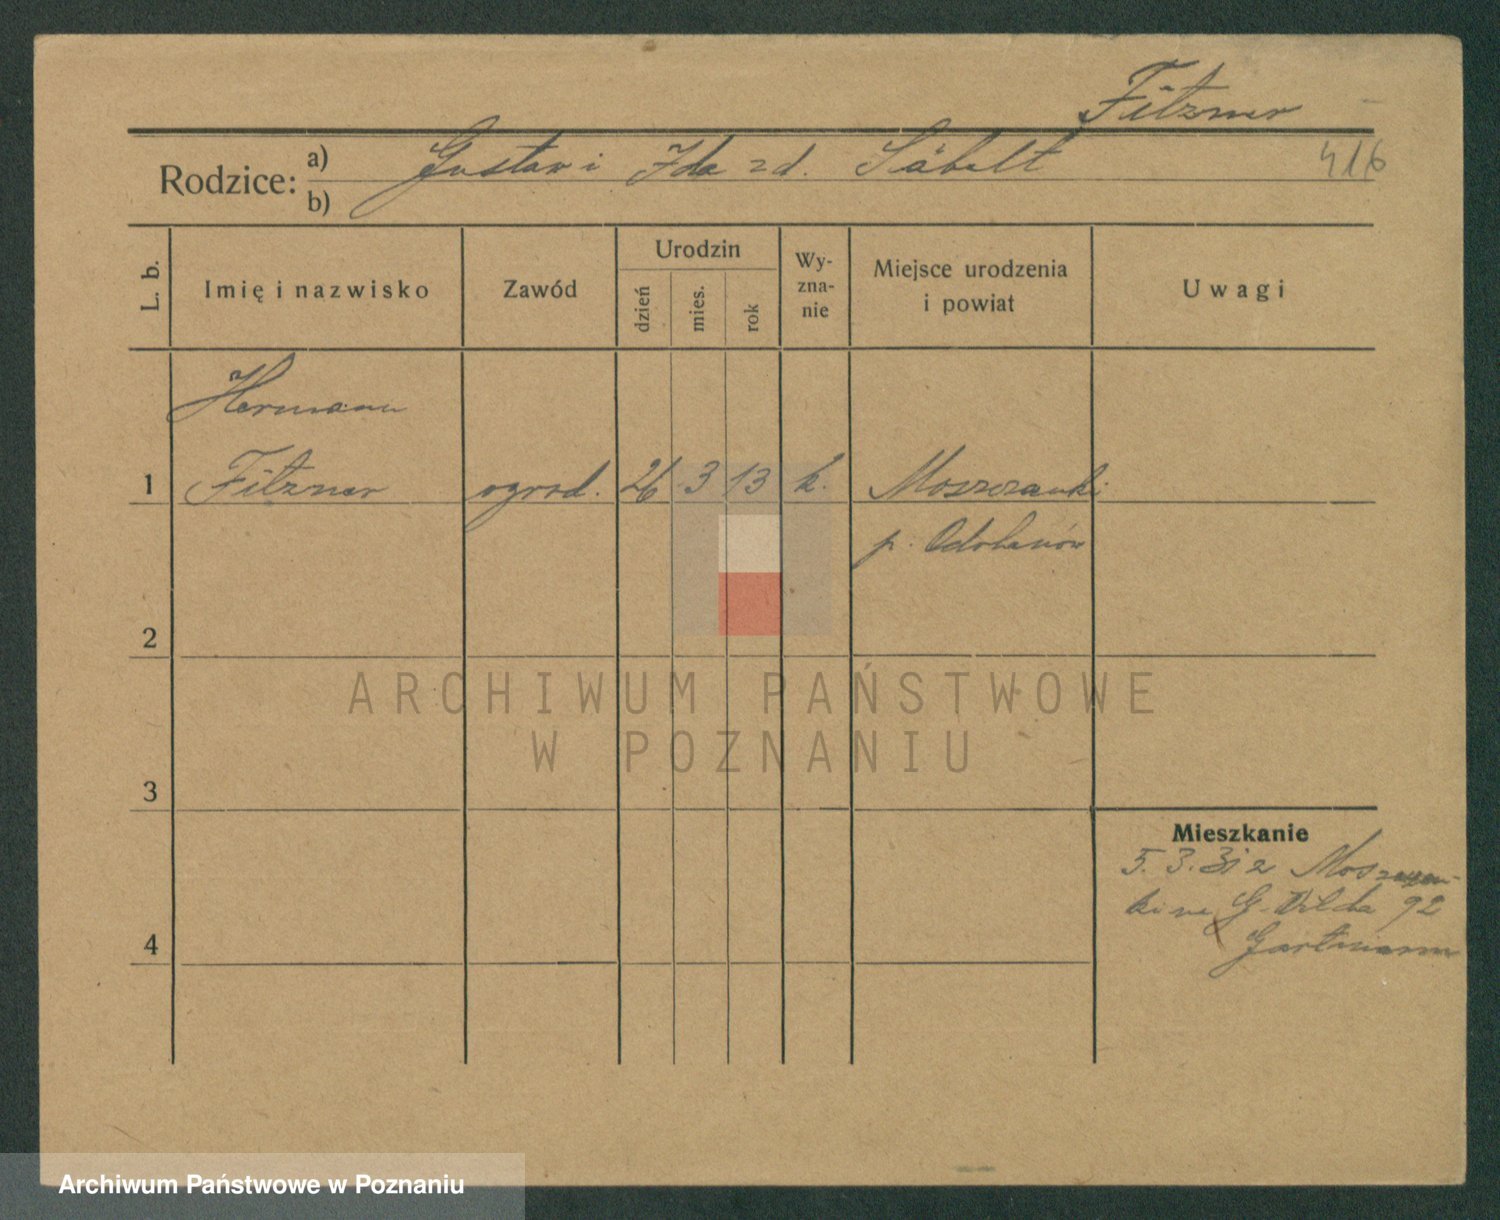 Fitzner
Rodzice: a) Gustav i Ida zd. Säbelt 416
b)
L. b.
Imię i nazwisko
Zawód
Urodzin
dzień
mies.
rok
Wy-
zna-
nie
Miejsce urodzenia
i powiat
Uwagi
Hermann
1 Fitzner ogrod. 26 3 13 k. Moszczanki
p. Odolanów
2
3
4
Mieszkanie
5.3.31 z
G. Wilda 92
Gartmann
ARCHIWUM PAŃSTWOWE
W POZNANIU
Archiwum Państwowe w Poznaniu